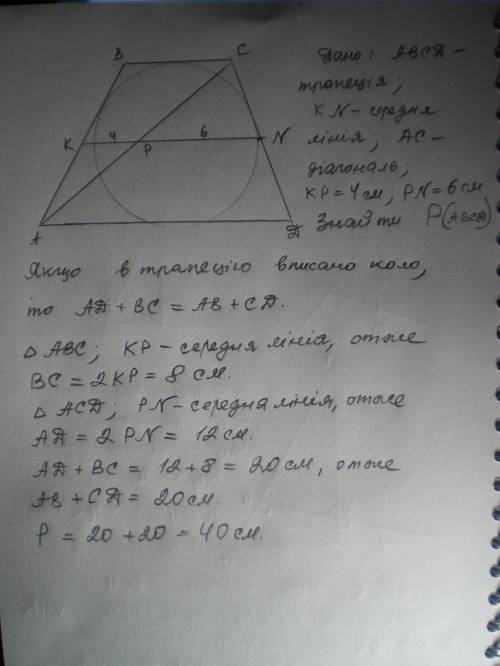 B
C
K
4
P
6
N
A
Д
Дано: ABCД -
трапеція;
KN - середня
лінія; AC -
діагональ;
KP = 4 см; PN = 6 см
Знайти P(ABCД)
Якщо в трапецію вписано коло,
то AД + BC = AB + CД.
△ ABC; KP - середня лінія, отже
BC = 2KP = 8 см.
△ ACД; PN - середня лінія, отже
AД = 2 PN = 12 см.
AД + BC = 12 + 8 = 20 см, отже
AB + CД = 20 см.
P = 20 + 20 = 40 см.